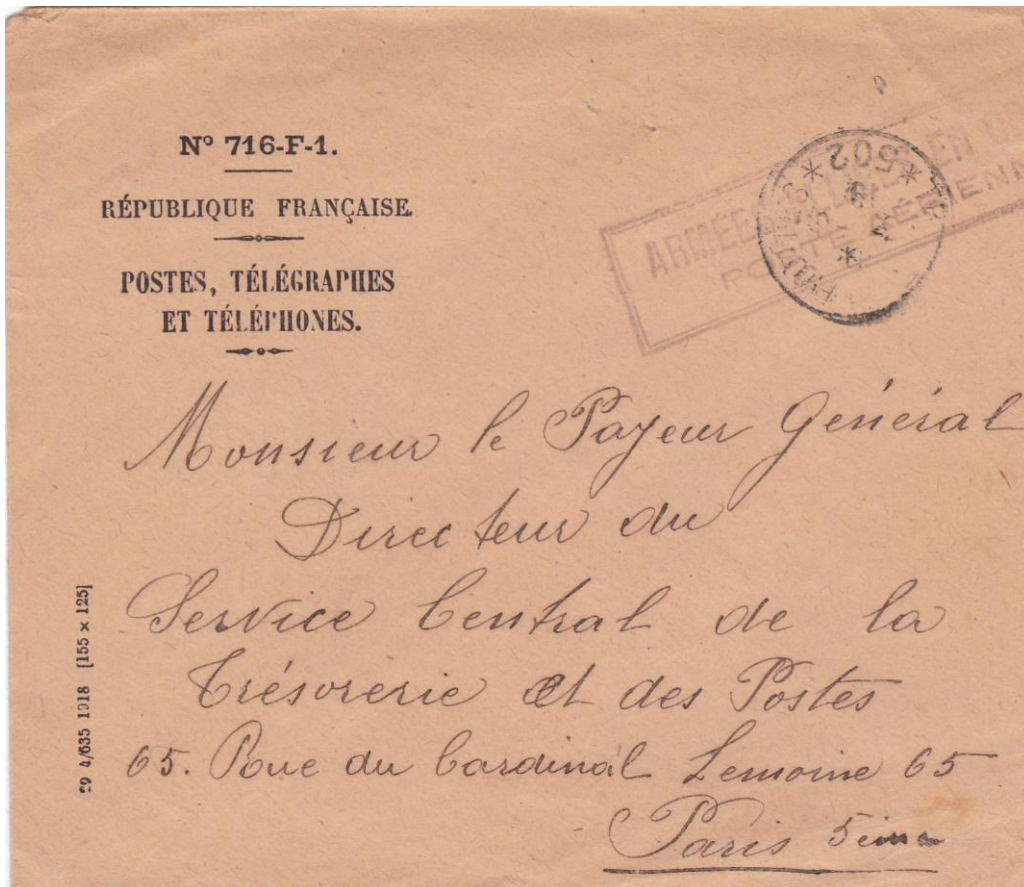 N° 716-F-1.
RÉPUBLIQUE FRANÇAISE.
POSTES, TÉLÉGRAPHES
ET TÉLÉPHONES.
ARMÉE EN
POSTE AÉRIENN
*502*
Monsieur le Payeur Général
Directeur du
Service Central de la
Trésorerie et des Postes
65. Rue du Cardinal Lemoine 65
Paris 5ème
29 4/635 1918 [155 × 125]